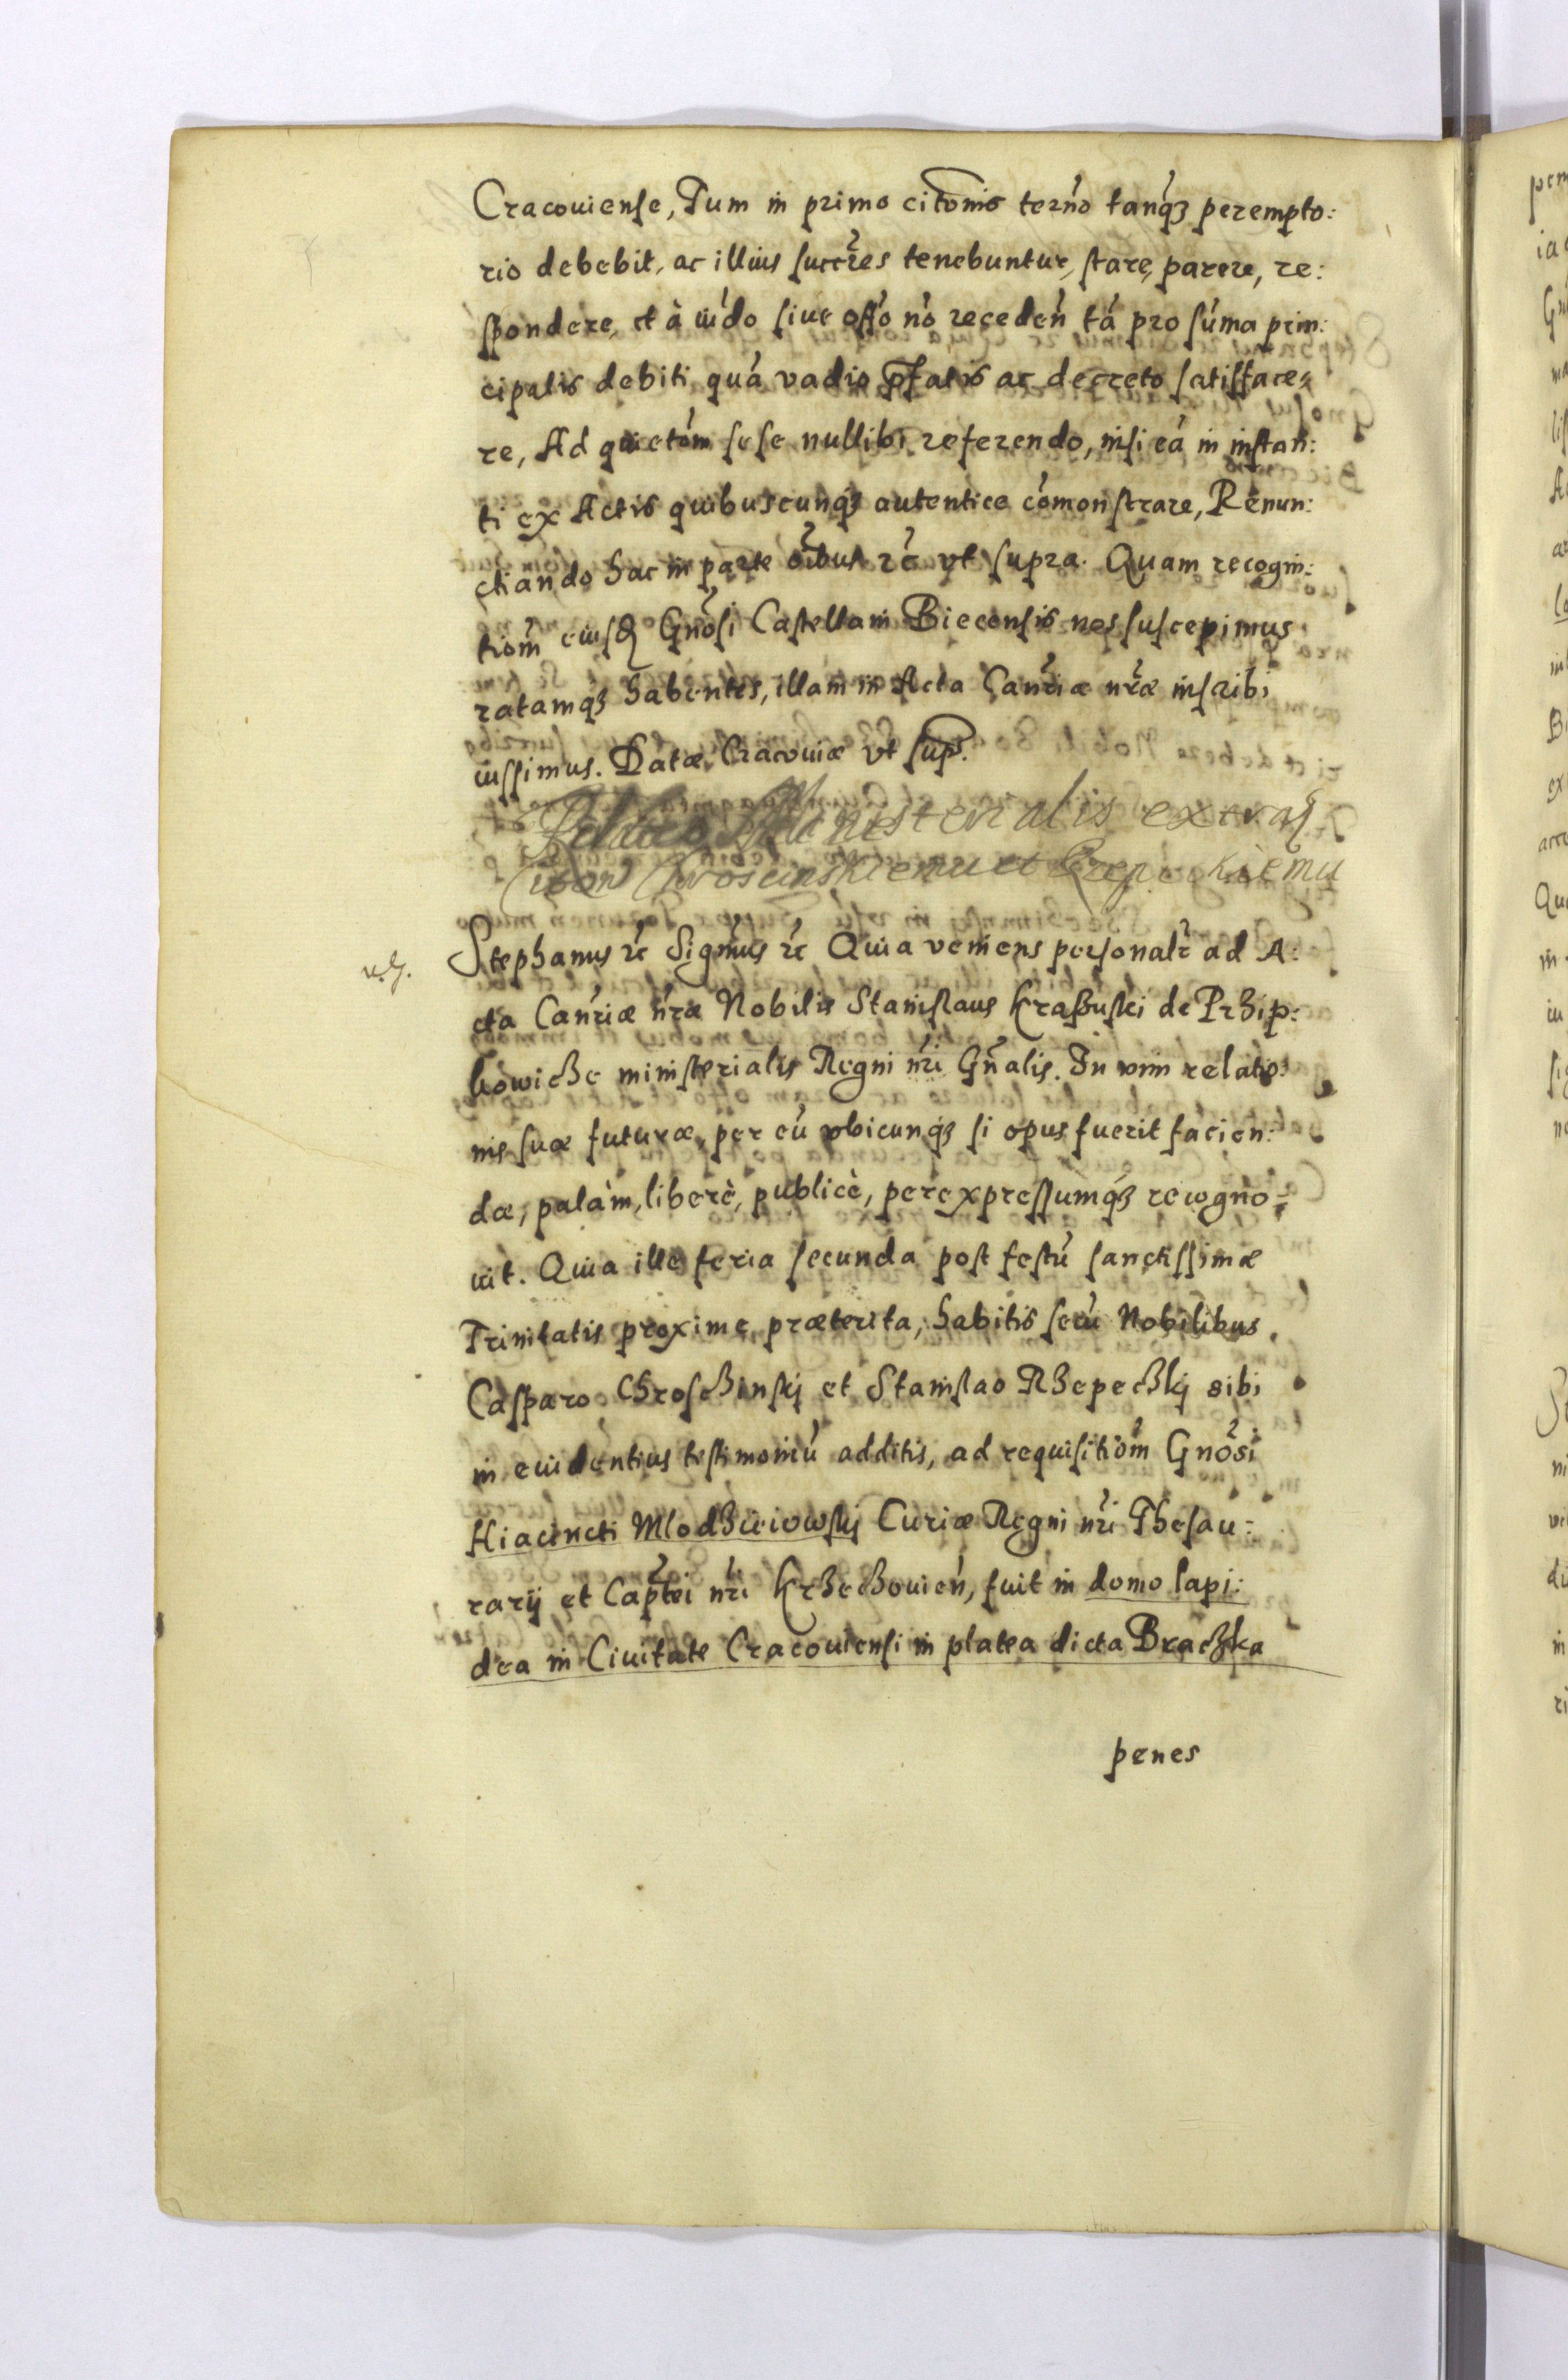 Cracouiense, Tum in primo citonis termo tanq́ʒ perempto:
rio debebit, ac illius succres tenebuntur, stare, parere, re:
spondere, et à iudo siue offo nó receden tá pro súma prin:
cipalis debiti quá vadio pfatis ac decreto satisface,
re, Ad quietom sese nullibi referendo, nisi eá in instan:
ti ex Actis quibuscunqʒ autentice cómonstrare, Renun:
ctiando hac in parte oibus rc vt supra. Quam recogni:
tiom eiusd Gnosi Castellani Biecensis nos suscepimus
ratamqʒ habentes, illam in Acta Canriæ nræ inscribi
iussimus. Datæ Cracouiæ vt sup.
Ministerialis
Stephanus rc Sigmus rc Quia veniens personalr ad A:
cta Canriæ nræ Nobilis Stanislaus Kraßuski de Prʒip:
kowicʒe ministerialis Regni nri Gnalis. In vim relatio:
nis suæ futuræ, per eú vbicunqʒ si opus fuerit facien:
dæ, palàm, liberè, publicè, perexpressumqʒ recogno:
uit. Quia ille feria secunda post festú sanctissimæ
Trinitatis proxime præterita, habitis secú Nobilibus
Casparo Chroscʒinskj et Stanislao Rʒepecʒkj sibi
in euidentius testimoniú additis, ad requisitiom Gnosi
Hiacincti Mlodʒieiowskj Curiæ Regni nri Thesau:
rarij et Captei nri Krʒecʒouien, fuit in domo lapi:
dea in Ciuitate Cracouiensi in platea dicta Bracʒka
penes